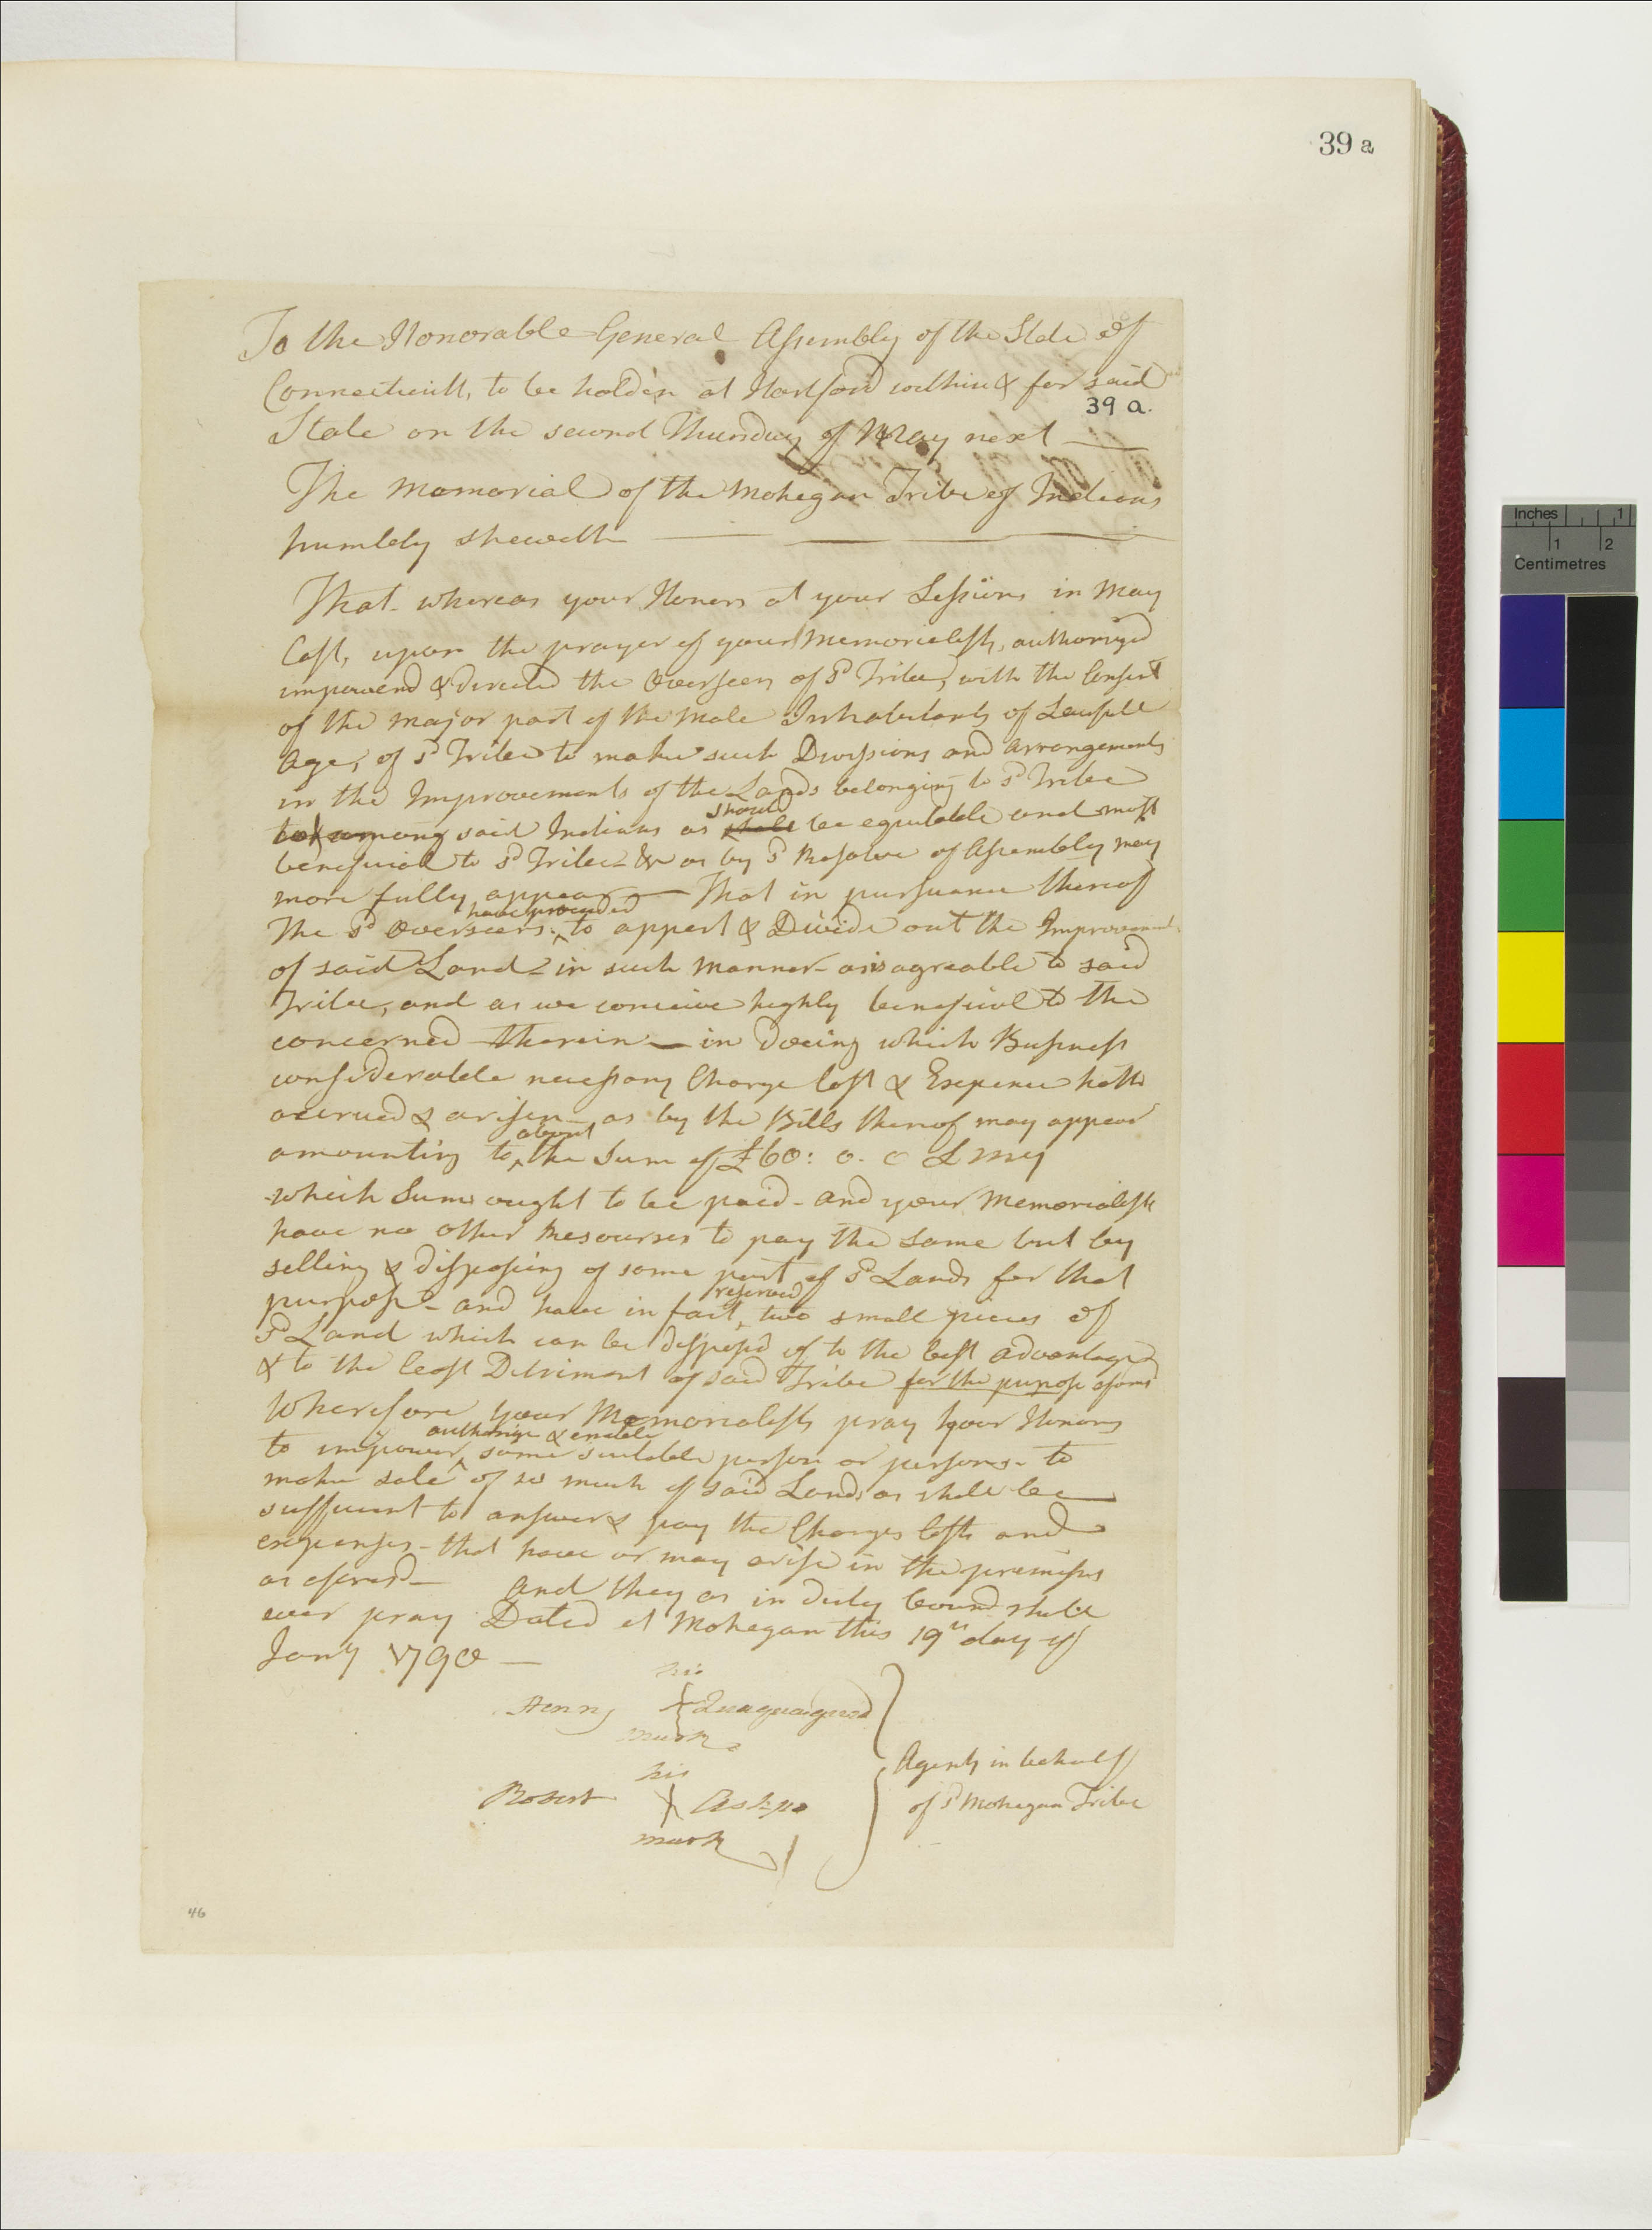 39 a
To the Honorable General Assembly of the State of
Connecticutt, to be holden at Hartford within & for said
39 a.
State on the second Thursday of May next
The Memorial of the Mohegan Tribe of Indians
humbly sheweth
That whereas your Honors at your Sessions in May
last, upon the prayer of your Memorialists, authorized
impowered & directed the Overseers of sd Tribe, with the Consent
of the major part of the Male Inhabitants of Lawfull
Age, of sd Tribe to make such Divisions and arrangements
in the Improvements of the Lands belonging to sd Tribe
among said Indians as should be equitable and most
beneficial to sd Tribe & as by sd Resolve of Assembly may
more fully appear — That in pursuance thereof
The sd Overseers have proceeded to appart & Divide out the Improvement
of said Land in such manner as is agreable to said
Tribe, and as we conceive highly beneficial to the
concerned therein — in doeing which Business
considerable necessary Charge Cost & Expence hath
accrued & arisen as by the Bills thereof may appear
amounting to about the Sum of £60: 0. 0 L my
which Sum ought to be paid - and your Memorialists
have no other Resourses to pay the same but by
selling & disposing of some part of sd Lands for that
purpose - and have in fact reserved two small pieces of
sd Land which can be disposd of to the best advantage
& to the least Detriment of said Tribe for the purpose aforesd
Wherefore your Memorialists pray your Honors
to impower authorize & enable some suitable person or persons to
make sale of so much of said Land as shall be
sufficient to answer & pay the Charges Costs and
expenses - that have or may arise in the premises
as aforesd — And they as in duty bound shall
ever pray Dated at Mohegan this 19th day of
Jany 1790 —
his
Henry X Quaquaquid
mark
his
Robert X Ashpo
mark
Agents in behalf
of sd Mohegan Tribe
46
Inches 1
1 2
Centimetres